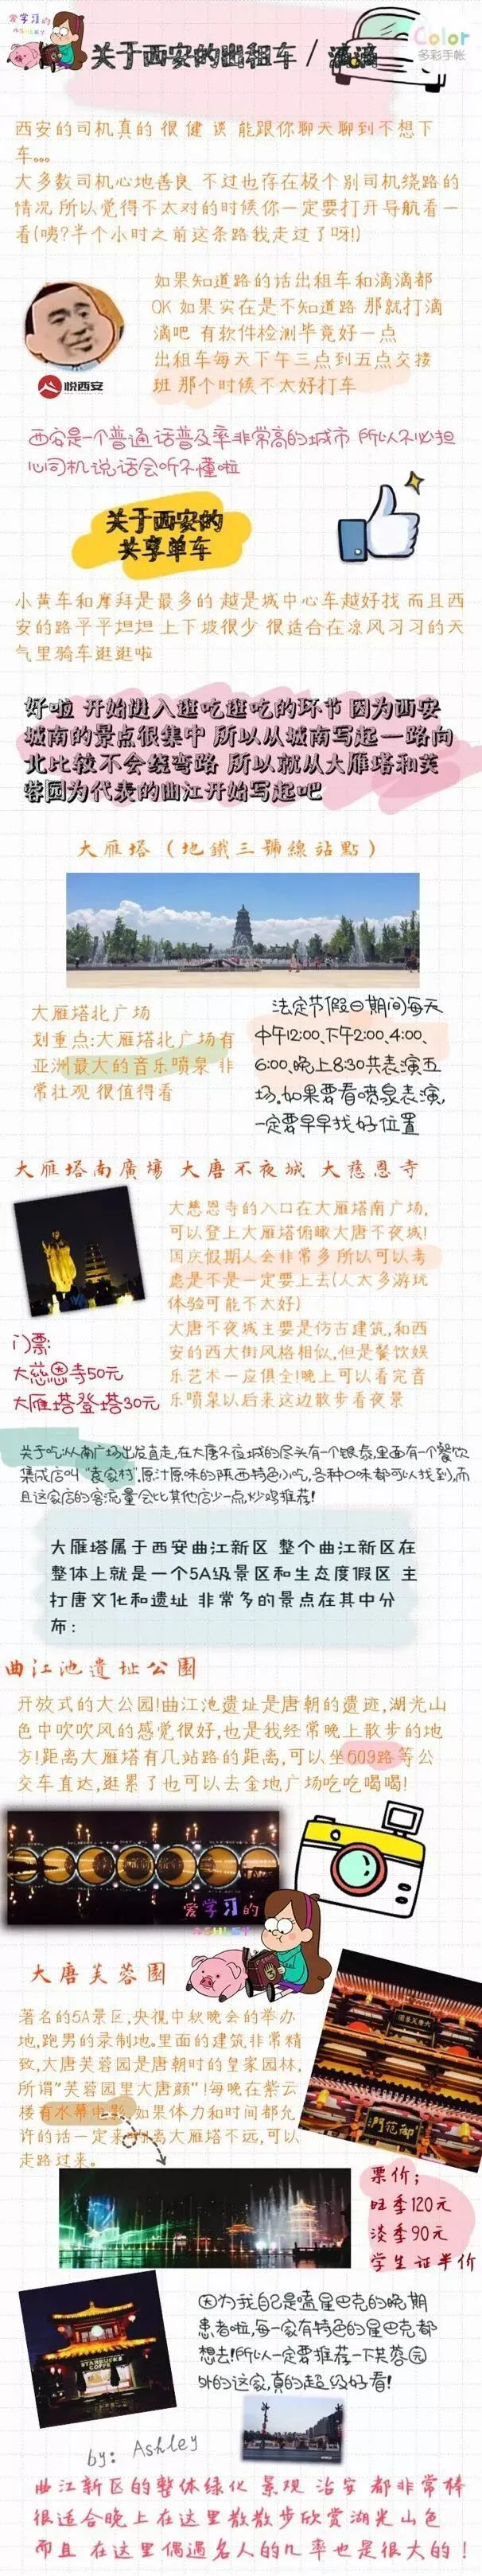 爱学习的
ASHLEY
关于西安的出租车 / 滴滴
Color
多彩手帐
西安的司机真的 很 健 谈 能跟你聊天聊到不想下
车。。。
大多数司机心地善良 不过也存在极个别司机绕路的
情况 所以觉得不太对的时候你一定要打开导航看一
看(咦?半个小时之前这条路我走过了呀!)
如果知道路的话出租车和滴滴都
OK 如果实在是不知道路 那就打滴
滴吧 有软件检测毕竟好一点
出租车每天下午三点到五点交接
班 那个时候不太好打车
悦西安
西安是一个普通话普及率非常高的城市 所以不必担
心司机说话会听不懂啦
关于西安的
共享单车
小黄车和摩拜是最多的 越是城中心车越好找 而且西
安的路平平坦坦 上下坡很少 很适合在凉风习习的天
气里骑车逛逛啦
好啦 开始进入逛吃逛吃的环节 因为西安
城南的景点很集中 所以从城南写起一路向
北比较不会绕弯路 所以就从大雁塔和芙
蓉园为代表的曲江开始写起吧
大雁塔（地鐵三號線站點）
大雁塔北广场
划重点:大雁塔北广场有
亚洲最大的音乐喷泉 非
常壮观 很值得看
法定节假日期间每天
中午12:00、下午2:00、4:00、
6:00、晚上8:30共表演五
场。如果要看喷泉表演,
一定要早早找好位置
大雁塔南廣場 大唐不夜城 大慈恩寺
大慈恩寺的入口在大雁塔南广场,
可以登上大雁塔俯瞰大唐不夜城!
国庆假期人会非常多所以可以考
虑是不是一定要上去(人太多游玩
体验可能不太好)
大唐不夜城主要是仿古建筑,和西
安的西大街风格相似,但是餐饮娱
乐艺术一应俱全!晚上可以看完音
乐喷泉以后来这边散步看夜景
门票:
大慈恩寺50元
大雁塔登塔30元
关于吃:从南广场出发直走,在大唐不夜城的尽头有个银泰,里面有个餐饮
集成店叫“袁家村”,原汁原味的陕西特色小吃,各种口味都可以找到,而
且这家店的客流量会比其他店少一点,炒鸡推荐!
大雁塔属于西安曲江新区 整个曲江新区在
整体上就是一个5A级景区和生态度假区 主
打唐文化和遗址 非常多的景点在其中分
布：
曲江池遺址公園
开放式的大公园!曲江池遗址是唐朝的遗迹,湖光山
色中吹吹风的感觉很好,也是我经常晚上散步的地
方!距离大雁塔有几站路的距离,可以坐609路等公
交车直达,逛累了也可以去金地广场吃吃喝喝!
爱学习的
ASHLEY
大唐芙蓉園
著名的5A景区,央视中秋晚会的举办
地,跑男的录制地。里面的建筑非常精
致,大唐芙蓉园是唐朝时的皇家园林,
所谓“芙蓉园里大唐颜”!每晚在紫云
楼有水幕电影,如果体力和时间都允
许的话一定来!离大雁塔不远,可以
走路过来。
御苑門
票价；
旺季120元
淡季90元
学生证半价
STARBUCKS
COFFEE
因为我自己是嗑星巴克的晚期
患者啦,每一家有特色的星巴克都
想去!所以一定要推荐一下芙蓉园
外的这家,真的超级好看!
by: Ashley
曲江新区的整体绿化 景观 治安 都非常棒
很适合晚上在这里散散步欣赏湖光山色
而且 在这里偶遇名人的几率也是很大的！